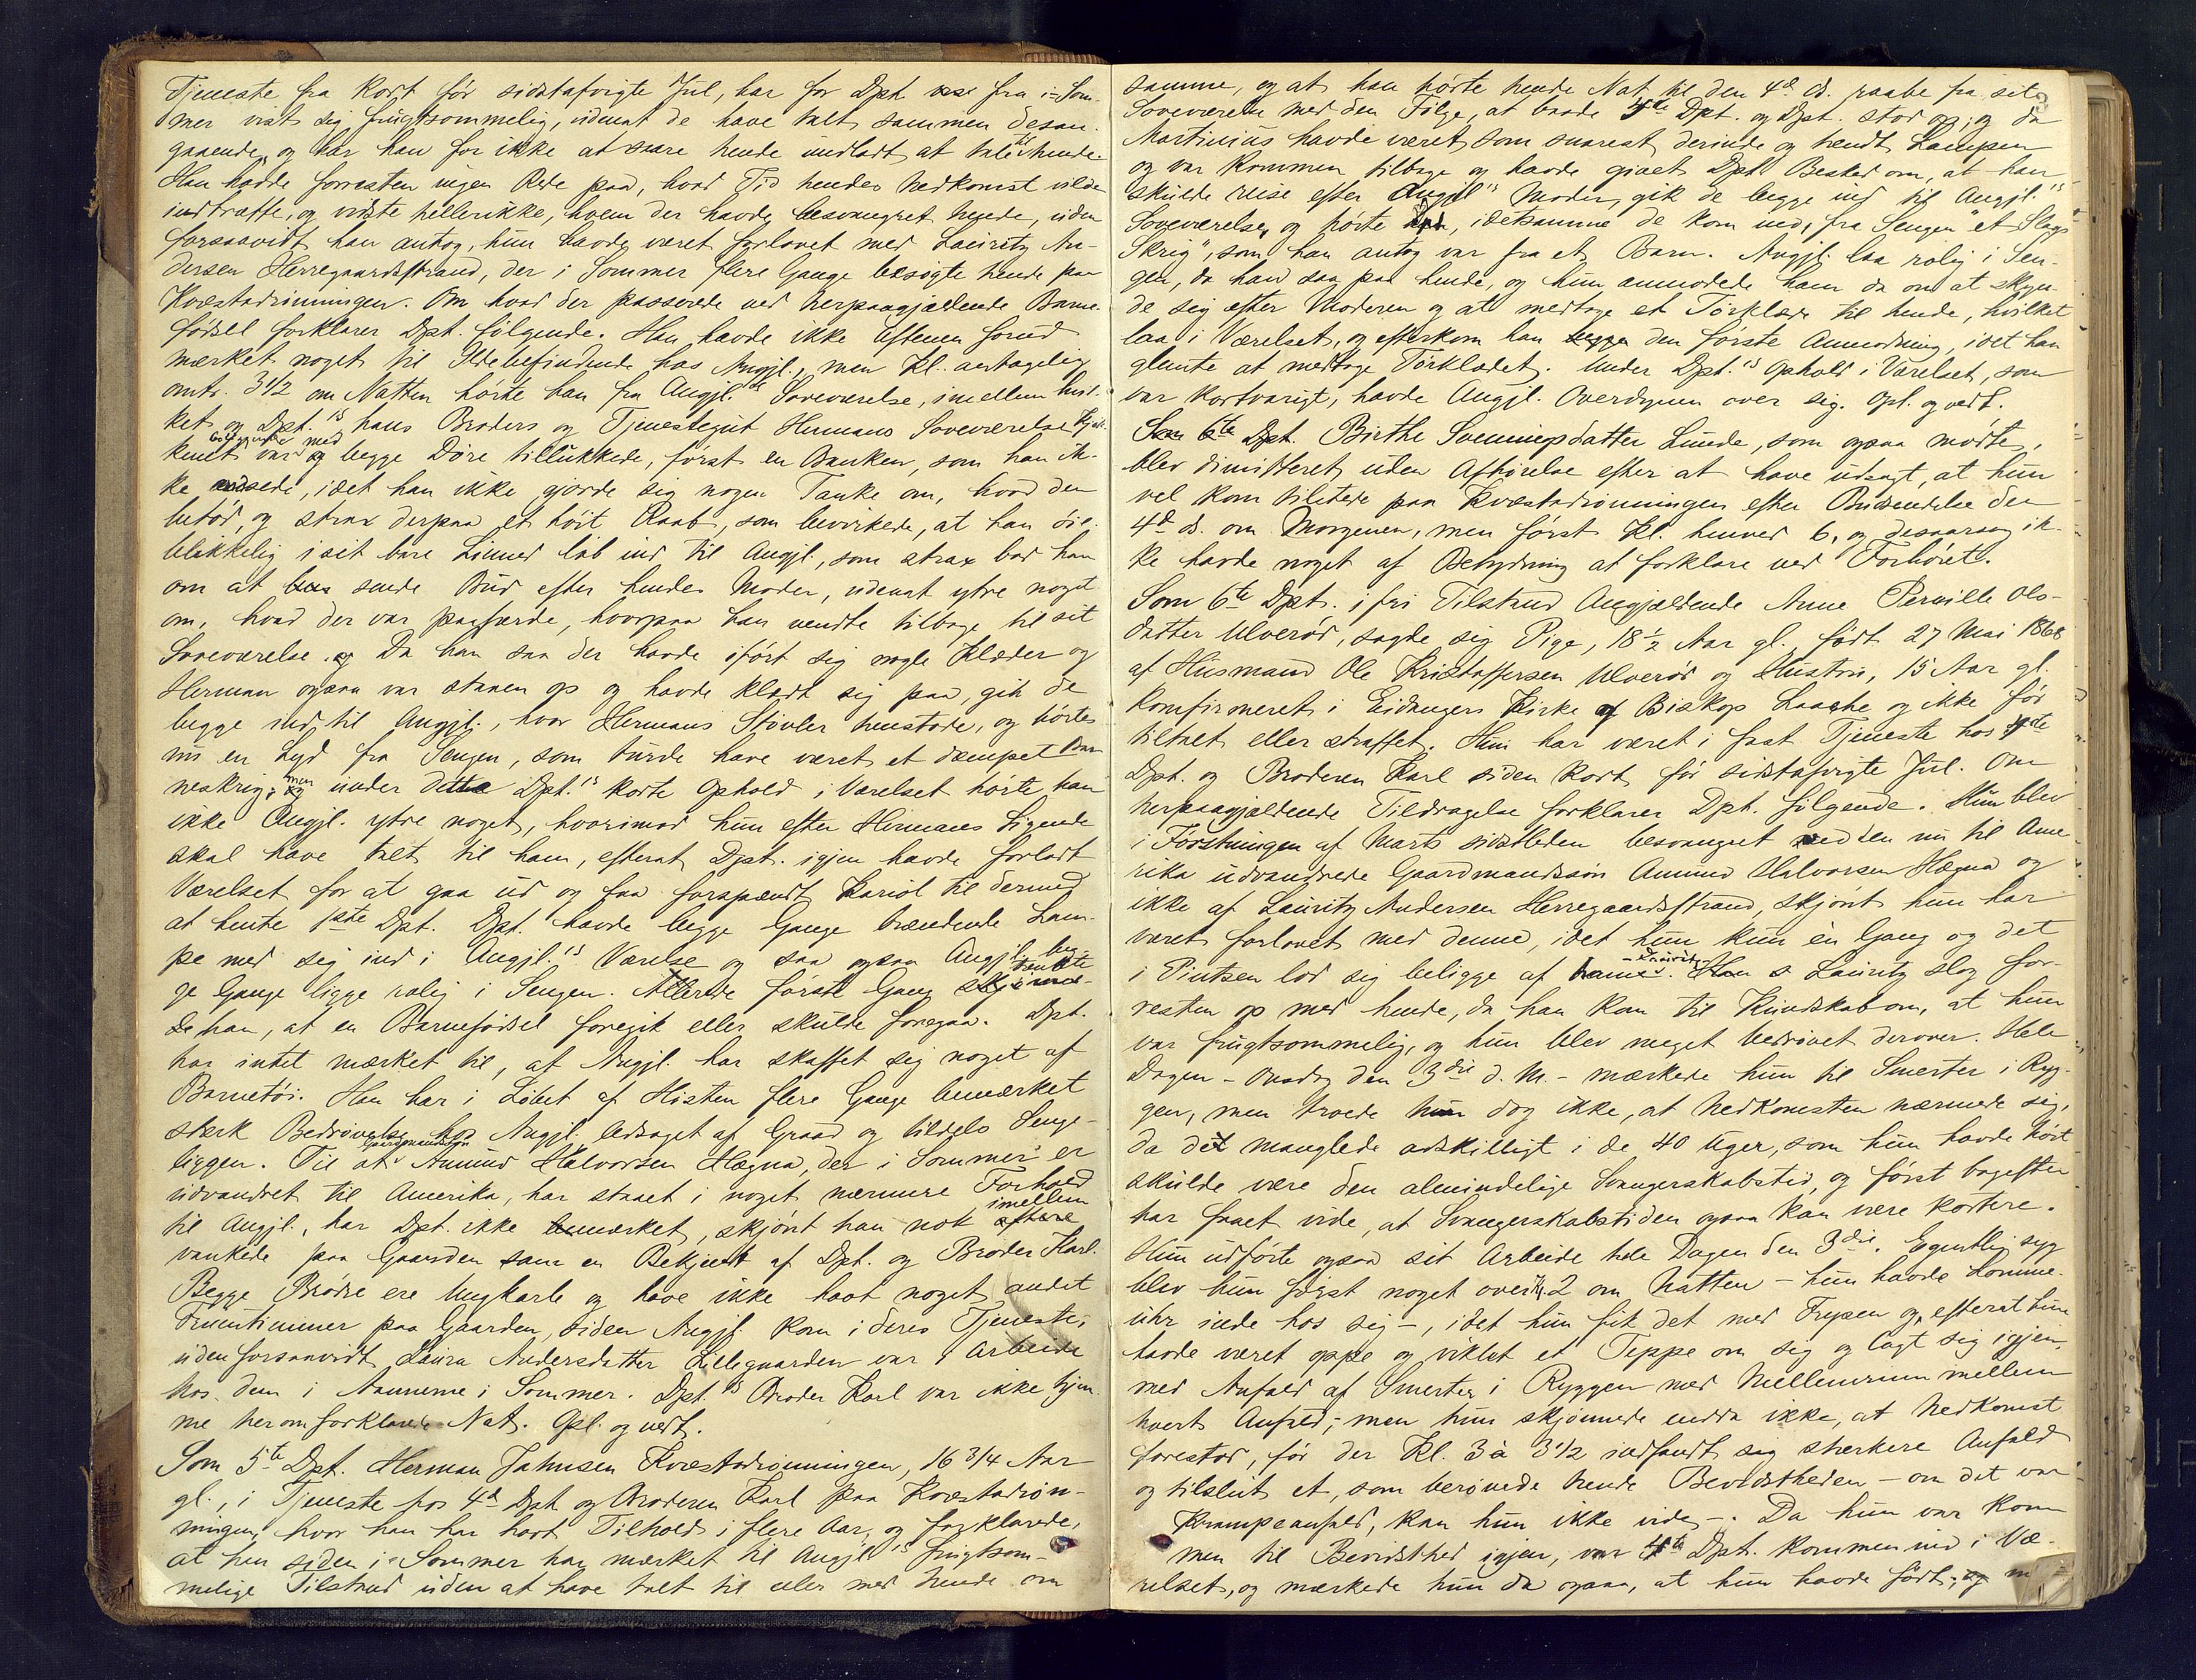 Tjeneste fra kort før sidstafvigte Jul, har for Dpt. fra i Som-
mer vist sig frugtsommelig, udenat de have talt sammen desan-
gaaende, og har han for ikke at saare hende undladt at tale til hende.
Han havde forresten ingen Rede paa, hvad Tid hendes Nedkomst vilde
indtræffe, og vidste hellerikke, hvem der havde besvangret hende, uden
forsaavidt han antog, hun havde været forlovet med Lauritz An-
dersen Herregaardsstrand, der i Sommer flere Gange besøgte hende paa
Kvæstadrønningen. Om hvad der passerede ved herpaagjældende Barne-
fødsel forklarer Dpt. følgende. Han havde ikke Aftenen forud
mærket noget til Ildebefindende hos Angjl., men Kl. antagelig
omtr. 3 1/2 om Natten hørte han fra Angjl.s Soveværelse, imellem hvil-
ket og Dpt.'s hans Broders og Tjenestegut Hermans Soveværelse Kjøk-
kenet var beliggende med begge Døre tillukkede, først en Banken, som han ik-
ke ændsede, idet han ikke gjorde sig nogen Tanke om, hvad den
betød, og strax derpaa et høit Raab, som bevirkede, at han øie-
blikkelig i sit bare Linned løb ind til Angjl., som strax bad ham
om at sende Bud efter hendes Moder, udenat ytre noget
om, hvad der var paafærde, hvorpaa han vendte tilbage til sit
Soveværelse. Da han saa der havde iført sig nogle Klæder og
Herman ogsaa var staaen op og havde klædt sig paa, gik de
begge ind til Angjl., hvor Hermans Støvler henstode, og hørtes
nu en Lyd fra Sengen, som turde have været et dæmpet Bar-
neskrig; men under dette Dpt.'s korte Ophold i Værelset hørte han
ikke Angjl. ytre noget, hvorimod hun efter Hermans Sigende
skal have talt til ham, efterat Dpt. igjen havde forladt
Værelset for at gaa ud og faa forspændt Kariol til dermed
at hente 1ste Dpt. Dpt. havde begge Gange brændende Lam-
pe med sig ind i Angjl.'s Værelse og saa ogsaa Angjl. beg-
ge Gange ligge rolig i Sengen. Allerede første Gang tænkte
han, at en Barnefødsel foregik eller skulde foregaa. Dpt.
har intet mærket til, at Angjl. har skaffet sig noget af
Barnetøi. Han har i Løbet af Høsten flere Gange bemærket
stærk Bedrøvelse hos Angjl. ledsaget af Graad og tildels Senge-
liggen. Til at Gaardmandssøn Amund Halvorsen Høgna, der i Sommer er
udvandret til Amerika, har staaet i noget nærmere Forhold
til Angjl., har Dpt. ikke bemærket, skjønt han nok imellem
vankede paa Gaarden som en Bekjendt af Dpt. og Broder Karl.
Begge Brødre ere Ungkarle og have ikke havt noget andet
Fruentimmer paa Gaarden, siden Angjl. kom i deres Tjeneste,
uden forsaavidt Laura Andersdatter Lillegaarden var i Arbeide
hos dem i Aannerne i Sommer. Dpt.'s Broder Karl var ikke hjem-
me heromforklarede Nat. Opl. og vedt.
Som 5te Dpt. Herman Jahnsen Kvæstadrønningen, 16 3/4 Aar
gl., i Tjeneste hos 4de Dpt. og Broderen Karl paa Kvæstadrøn-
ningen, hvor han har havt Tilhold i flere Aar, og forklarede,
at han siden i Sommer har mærket til Angjl.'s frugtsom-
melige Tilstand uden at have talt til eller med hende om
samme, og at han hørte hende Nat til den 4d. ds. raabe fra sit
Soveværelse med den Følge, at baade 4de Dpt. og Dpt. stod op; og da
Martinius havde været som snarest derinde og tændt Lampen
og var kommen tilbage og havde givet Dpt. Besked om, at han
skulde reise efter Angjl.'s Moder, gik de begge ind til Angjl.'s
Soveværelse, og hørte Dpt., idetsamme de kom ind, fra Sengen "et Slags
Skrig", som han antog var fra et Barn. Angjl. laa rolig i Sen-
gen, da han saa paa hende, og hun anmodede ham da om at skyn-
de sig efter Moderen og at medtage et Tørklæde til hende, hvilket
laa i Værelset, og efterkom han den første Anmodning, idet han
glemte at medtage Tørklædet. Under Dpt.'s Ophold i Værelset, som
var kortvarigt, havde Angjl. Overdynen over sig. Opl. og vedt.
Som 6te Dpt. Birthe Svenningsdatter Lunde, som ogsaa mødte,
blev dimitteret uden Afhørelse efter at have udsagt, at hun
vel kom tilstede paa Kvæstadrønningen efter Budsendelse den
4d. ds. om Morgenen, men først Kl. henved 6, og desaarsag ik-
ke havde noget af Betydning at forklare ved Forhøret.
Som 6te Dpt. i fri Tilstand Angjældende Anne Pernille Ols-
datter Ulverød, sagde sig Pige, 18 1/2 Aar gl., født 27 Mai 1868
af Husmand Ole Kristoffersen Ulverød og Hustru, 15 Aar gl.
konfirmeret i Eidangers Kirke af Biskop Laache og ikke før
tiltalt eller straffet. Hun har været i fast Tjeneste hos 4de
Dpt. og Broderen Karl siden kort før sidstafvigte Jul. Om
herpaagjældende Tildragelse forklarer Dpt. følgende. Hun blev
i Førstningen af Marts sidstleden besvangret ved den nu til Ame-
rika udvandrede Gaardmandssøn Amund Halvorsen Høgna og
ikke af Lauritz Andersen Herregaardsstrand, skjønt hun har
været forlovet med denne, idet hun kun èn Gang og det
i Pintsen lod sig beligge af Lauritz. Lauritz slog for-
resten op med hende, da han kom til Kundskab om, at hun
var frugtsommelig, og hun blev meget bedrøvet derover. Hele
Dagen - Onsdag den 3die d. M. - mærkede hun til Smerter i Ryg-
gen, men troede hun dog ikke, at Nedkomsten nærmede sig,
da det manglede adskilligt i de 40 Uger, som hun havde hørt
skulde være den almindelige Svangerskabstid, og først bagefter
har faaet vide, at Svangerskabstiden ogsaa kan være kortere.
Hun udførte ogsaa sit Arbeide hele Dagen den 3die. Egentlig syg
blev hun først noget over Kl. 2 om Natten - hun havde Lomme-
uhr inde hos sig -, idet hun fik det med Frysen og, efterat hun
havde været oppe og viklet et Teppe om sig og lagt sig igjen,
med Anfald af Smerter i Ryggen med Mellemrum mellem
hvert Anfald; men hun skjønnede endda ikke, at Nedkomst
forestod, før der Kl. 3 à 3 1/2 indfandt sig stærkere Anfald
og tilslut et, som berøvede hende Bevidstheden - om det var
Krampeanfald, kan hun ikke vide -. Da hun var kom-
men til Bevidsthed igjen, var 4de Dpt. kommen ind i Væ-
relset, og mærkede hun da ogsaa, at hun havde født;